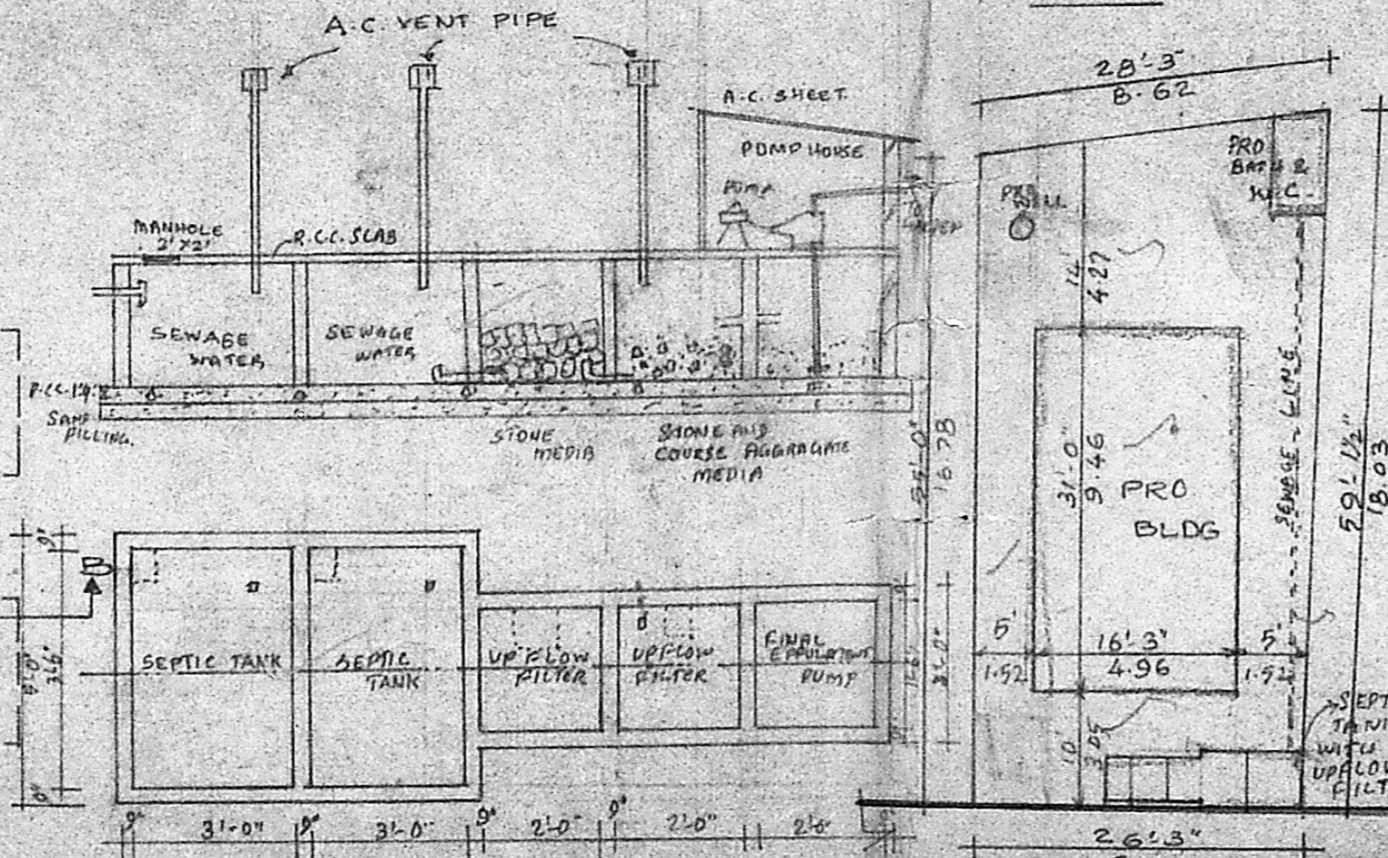 A.C. VENT PIPE
A.C. SHEET
PUMP HOUSE
PUMP
MANHOLE
2' X 2'
R.C.C. SLAB
SEWAGE
WATER
SEWAGE
WATER
SAND
FILLING.
STONE
MEDIA
STONE AND
COURSE AGGRAGATE
MEDIA
SEPTIC TANK
SEPTIC
TANK
UPFLOW
FILTER
UPFLOW
FILTER
FINAL
PUMP
9"
3'-0"
9"
3'-0"
9"
2'-0"
9"
2'-0"
28'-3"
8.62
PRO
BATH &
W.C.
14'
4.27
31'-0"
9.46
PRO
BLDG
SEWAGE LINE
59'-1½"
18.03
16.78
5'
1.52
16'-3"
4.96
5'
1.52
10'
3.05
SEPT
TANK
WITH
UPFLOW
FILT
26'-3"